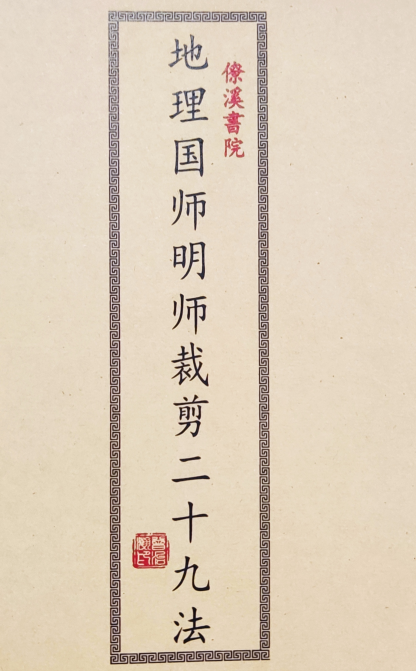 僚溪書院
地理国师明师裁剪二十九法